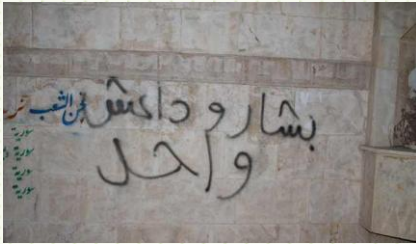 بشار و داعش
واحد
نحن الشعب
سورية
سورية
سورية
سورية